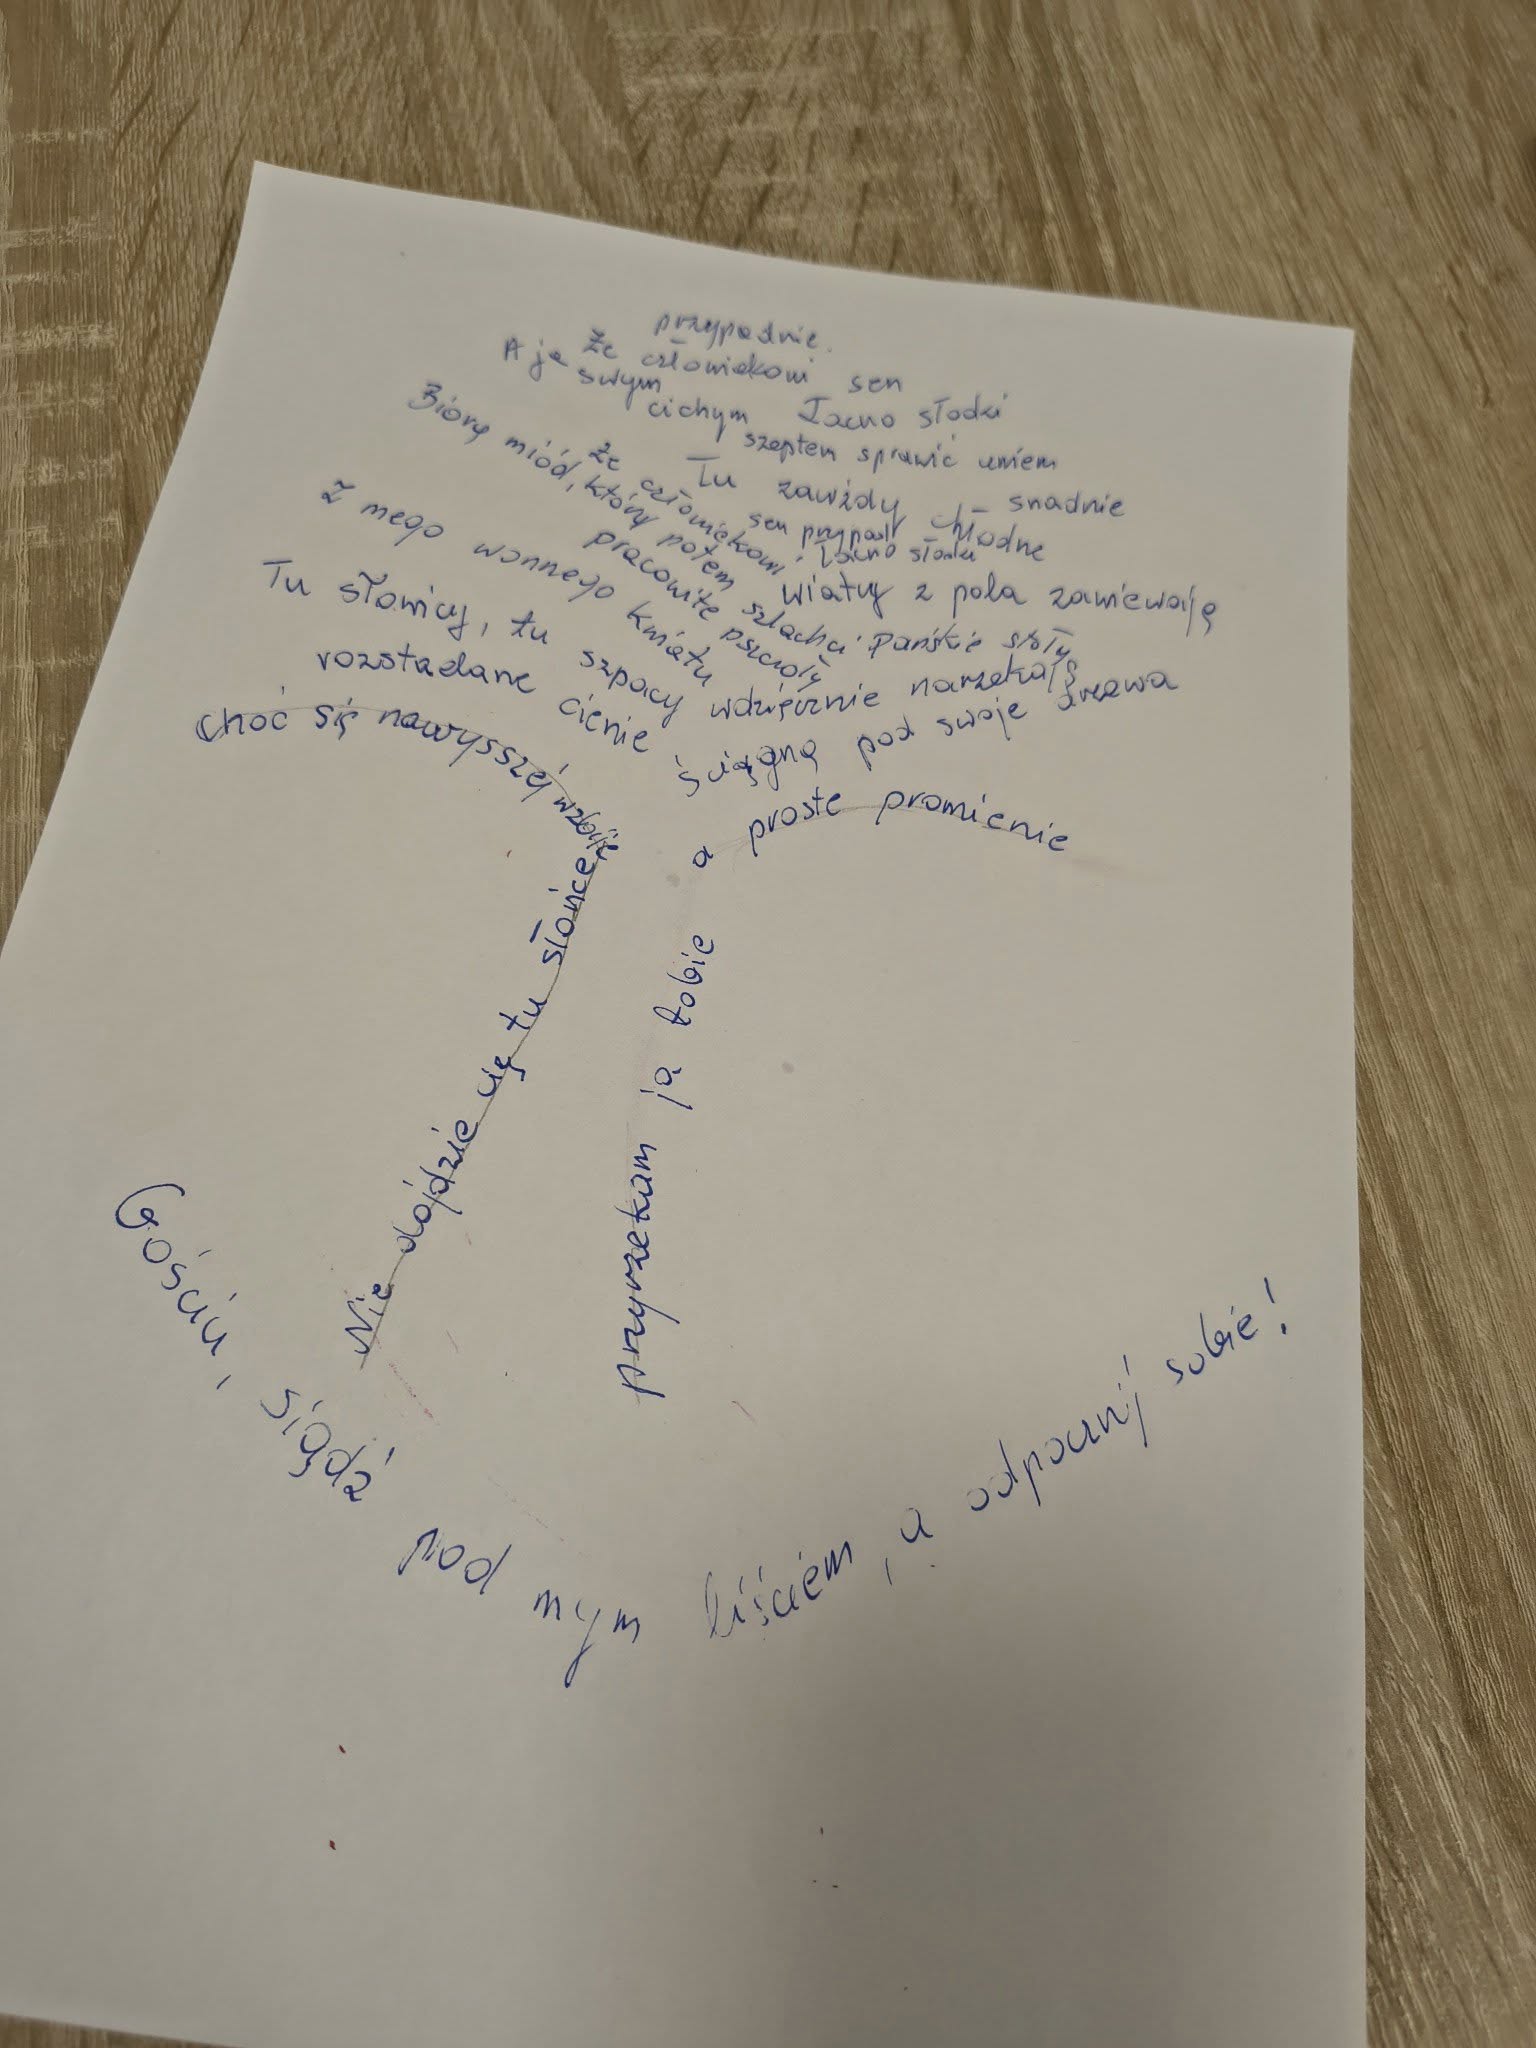 Gościu, siądź pod mym liściem, a odpocznij sobie!
Nie dójdzie cię tu słońce,
przyrzekam ja tobie
choć się nawysszéj wzbije
a proste promienie
ściągną pod swoje drzewa
rozstadane cienie
Tu zawżdy chłodne wiatry z pola zawiewają
Tu słowicy, tu szpacy wdzięcznie narzekają
Z mego wonnego kwiatu
pracowite pszczoły
Biorą miód, który potem szlachci Pańskie stoły
A ja swym cichym szeptem sprawić umiem snadnie
Że człowiekowi Łacno słodki
sen przypad
Że człowiekowi Łacno słodki
sen
przypadnie.